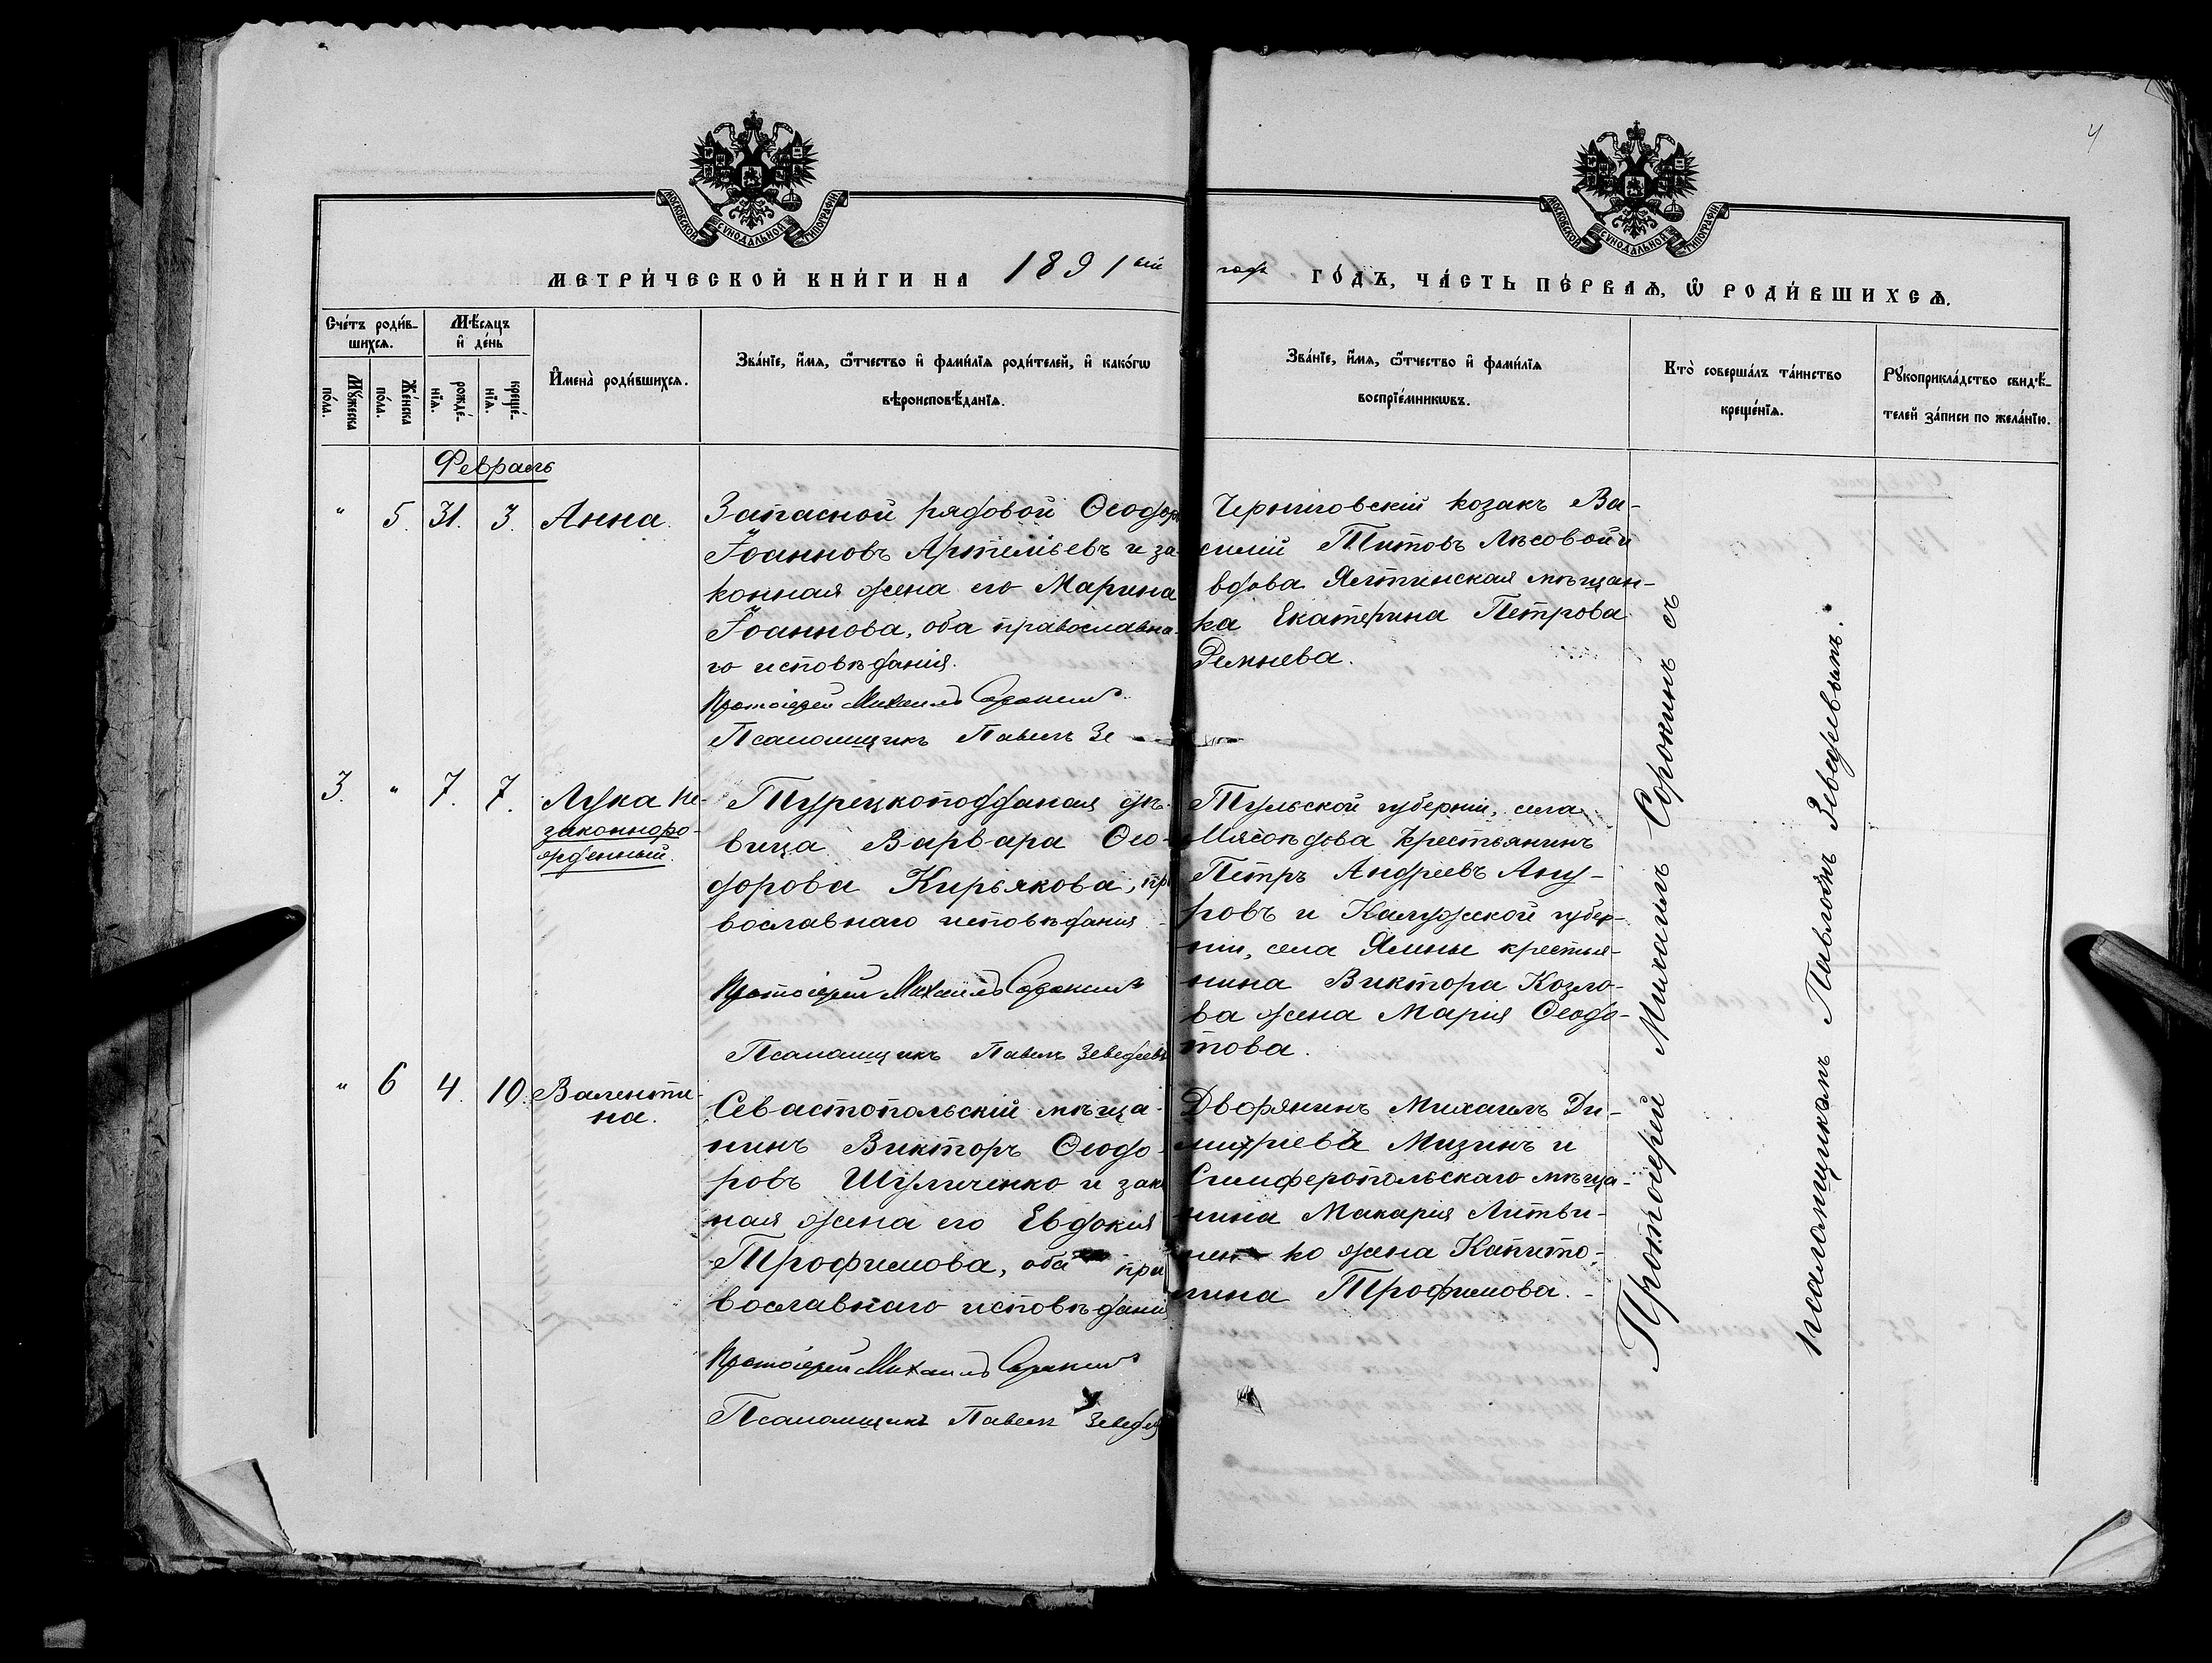 4
МОСКОВСКОЙ СУНОДАЛЬНОЙ ТИПОГРАФИИ
МОСКОВСКОЙ СУНОДАЛЬНОЙ ТИПОГРАФИИ
МЕТРИ́ЧЕСКОЙ КНИ́ГИ НА 1891ый
годъ ГО́ДЪ, ЧА́СТЬ ПЕ́РВАѦ, Ѡ҆ РОДИ́ВШИХСѦ.
Сче́тъ роди́в-
шихсѧ.
Мꙋ́жеска
по́ла.
Же́нска
по́ла.
Мѣ́сѧцъ
и҆ де́нь
рожде́-
нїѧ.
креще́-
нїѧ.
И҆мена̀ роди́вшихсѧ.
Зва́нїе, и҆́мѧ, ѻ҆́тчество и҆ фами́лїѧ роди́телей, и҆ како́гѡ
вѣроисповѣ́данїѧ.
Зва́нїе, и҆́мѧ, ѻ҆́тчество и҆ фами́лїѧ
воспрїе́мникѡвъ.
Кто̀ соверша́лъ та́инство
креще́нїѧ.
Рꙋкоприкла́дство свидѣ́-
телей за́писи по жела́нїю.
Февраль
" 5. 31. 3. Анна.
Запасной рядовой Ѳеодоръ
Іоанновъ Артемьевъ и за-
конная жена его Марина
Іоаннова, оба православна-
го исповѣданія.
Протоіерей Михаилъ Сорокинъ
Псаломщикъ Павелъ Зе
Черниговскій козакъ Ва-
силій Титовъ Лѣсовой и
вдова Ялтинская мѣщан-
ка Екатерина Петрова
Ремнева.
3. " 7. 7. Лука не-
законноро-
жденный.
Турецкоподданая дѣ-
вица Варвара Ѳео-
дорова Кирьякова, пр
вославнаго исповѣданія
Протоіерей Михаилъ Сорокинъ
Псаломщикъ Павелъ Зеведеевъ
Тульской губерніи, села
Мясоѣдова крестьянинъ
Петръ Андреевъ Ану-
ровъ и Калужской губер-
ніи, села Ямны крестья-
нина Виктора Козло-
ва жена Марія Ѳеодо-
това.
" 6 4. 10. Валенти-
на.
Севастопольскій мѣща-
нинъ Викторъ Ѳеодо-
ровъ Шуличенко и зако
ная жена его Евдокия
Трофимова, оба пра
вославнаго исповѣдані
Протоіерей Михаилъ Сорокинъ
Псаломщикъ Павелъ Зеведе
Дворянинъ Михаилъ Ди-
митріевъ Мизинъ и
Симферопольскаго мѣща-
нина Макарія Литви-
нен ко жена Капито-
лина Трофимова.
Протоіерей Михаилъ Сорокинъ съ
псаломщикомъ Павломъ Зеведеевымъ.